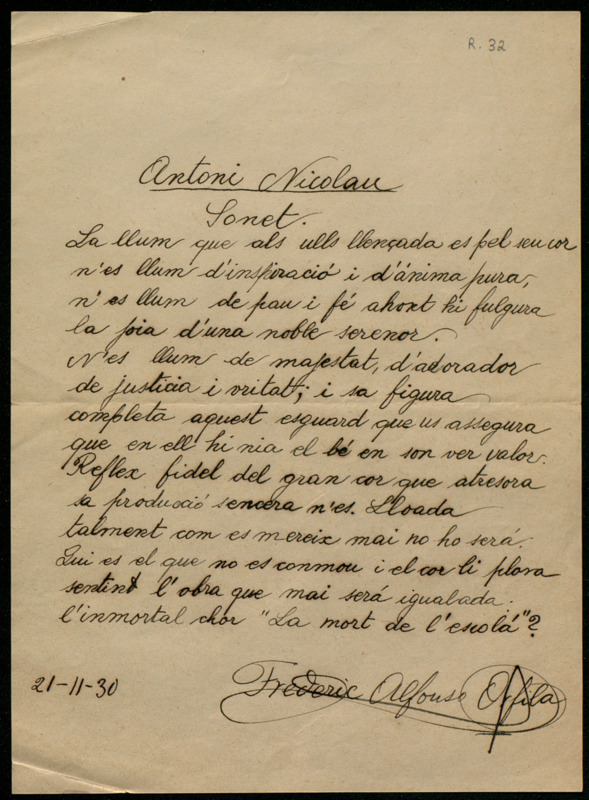 R. 32
Antoni Nicolau
Sonet.
La llum que als ulls llençada es pel seu cor
n'es llum d'inspiració i d'ánima pura,
n'es llum de pau i fé ahont hi fulgura
la joia d'una noble serenor.
N'es llum de majestat, d'adorador
de justicia i vritat; i sa figura
completa aquest esguard que us assegura
que en ell hi nia el bé en son ver valor.
Reflex fidel del gran cor que atresora
sa producció sencera n'es. Lloada
talment com es mereix mai no ho será.
Qui es el que no es conmou i el cor li plora
sentint l'obra que mai será igualada:
l'inmortal chor "La mort de l'escolá"?
21-11-30
Frederic Alfonso Orfila